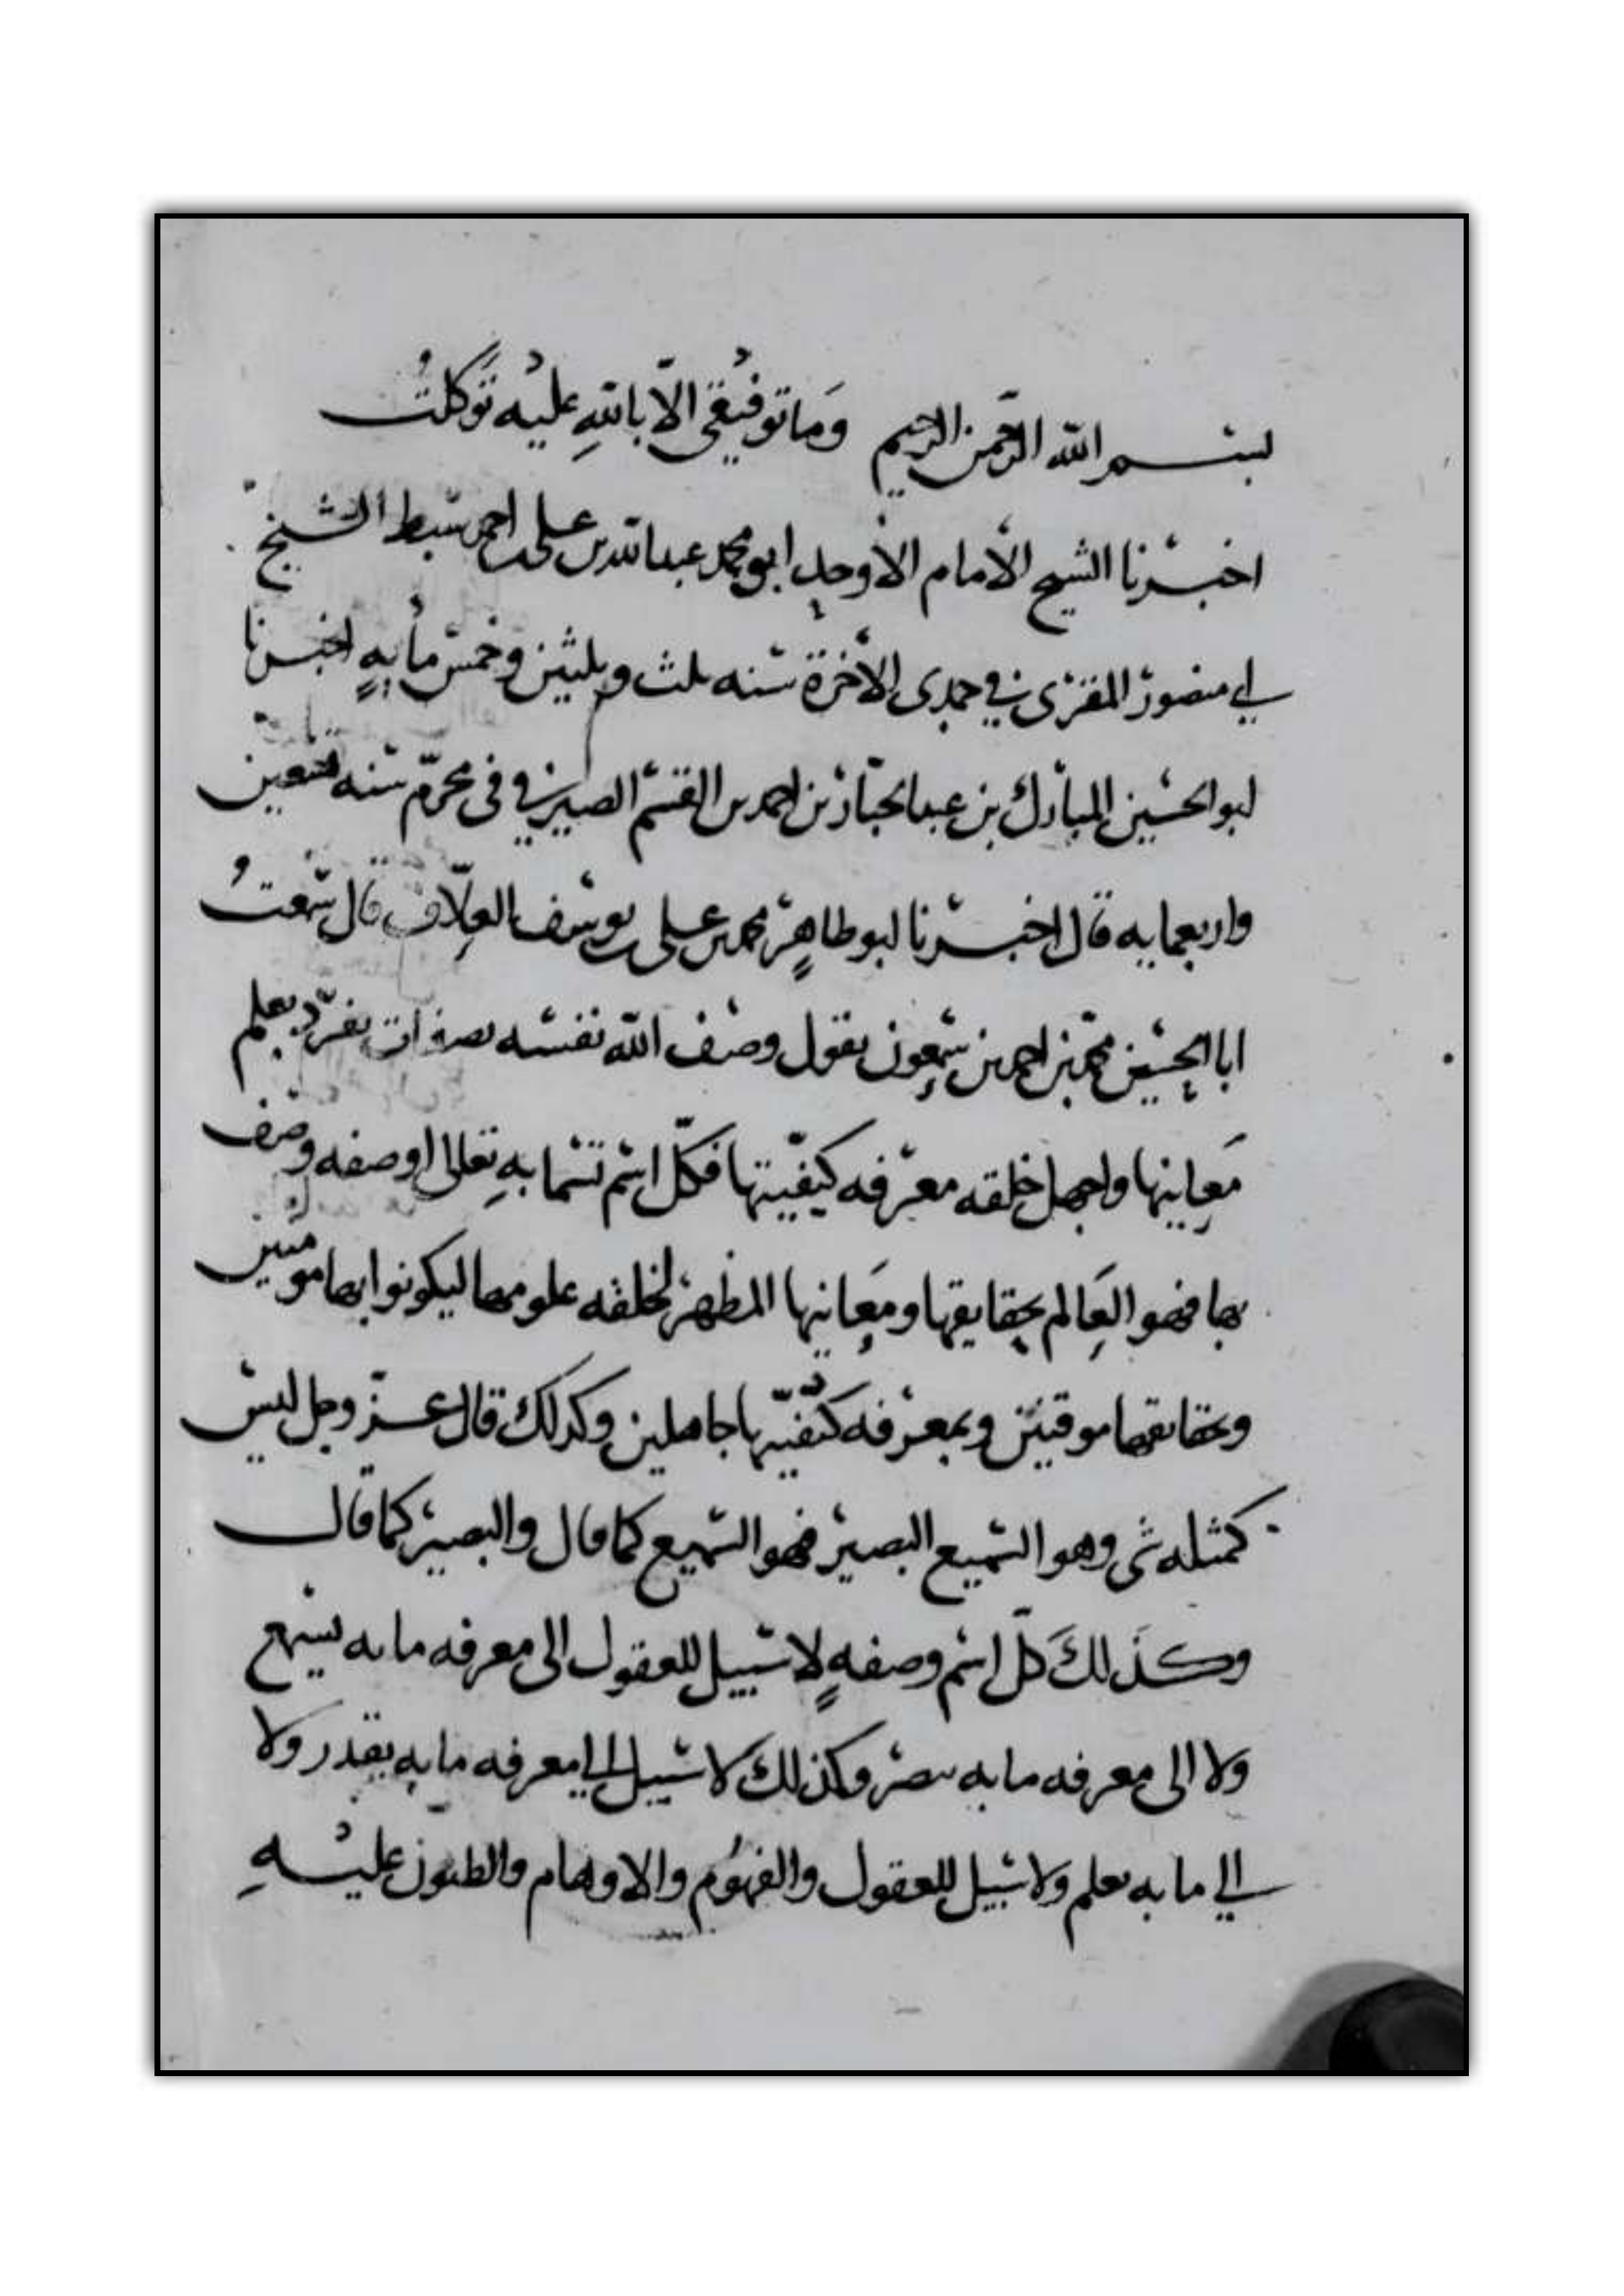 بسم الله الرحمن الرحيم وما توفيقي الا بالله عليه توكلت
اخبرنا الشيخ الامام الاوحد ابو محمد عبد الله بن علي بن احمد سبط الشيخ
ابي منصور المقرئ في جمدى الاخرة سنه ثلث وثلثين وخمس مايه اخبرنا
ابو الحسين المبارك بن عبد الجبار بن احمد بن القسم الصيرفي في محرم سنه تسعين
واربعمايه قال اخبرنا ابو طاهر محمد بن علي بن يوسف العلاف قال سمعت
ابا الحسين محمد بن احمد بن سمعون يقول وصف الله نفسه بصفات تفرد بعلم
معانيها واجهل خلقه معرفه كيفيتها فكل اسم تسما به تعالى او صفه وصف
بها فهو العالم بحقايقها ومعانيها المظهر لخلقه علومها ليكونوا بها مومنين
وبحقايقها موقنين وبمعرفه كيفيتها جاهلين وكذلك قال عز وجل ليس
كمثله شى وهو السميع البصير فهو السميع كما قال والبصير كما قال
وكذلك كل اسم وصفه لا سبيل للعقول الى معرفه ما به يسمع
ولا الى معرفه ما به يبصر وكذلك لا سبيل الى معرفه ما به يقدر ولا
الي ما به يعلم ولا سبيل للعقول والفهوم والاوهام والظنون عليه